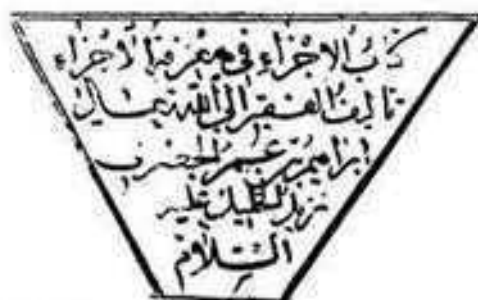 كتاب الاجزاء في معرفة الأجزاء
تاليف الفقير الى الله تعالى
ابراهيم بن عمر الجعبري
نزيل الخليل عليه
السلام